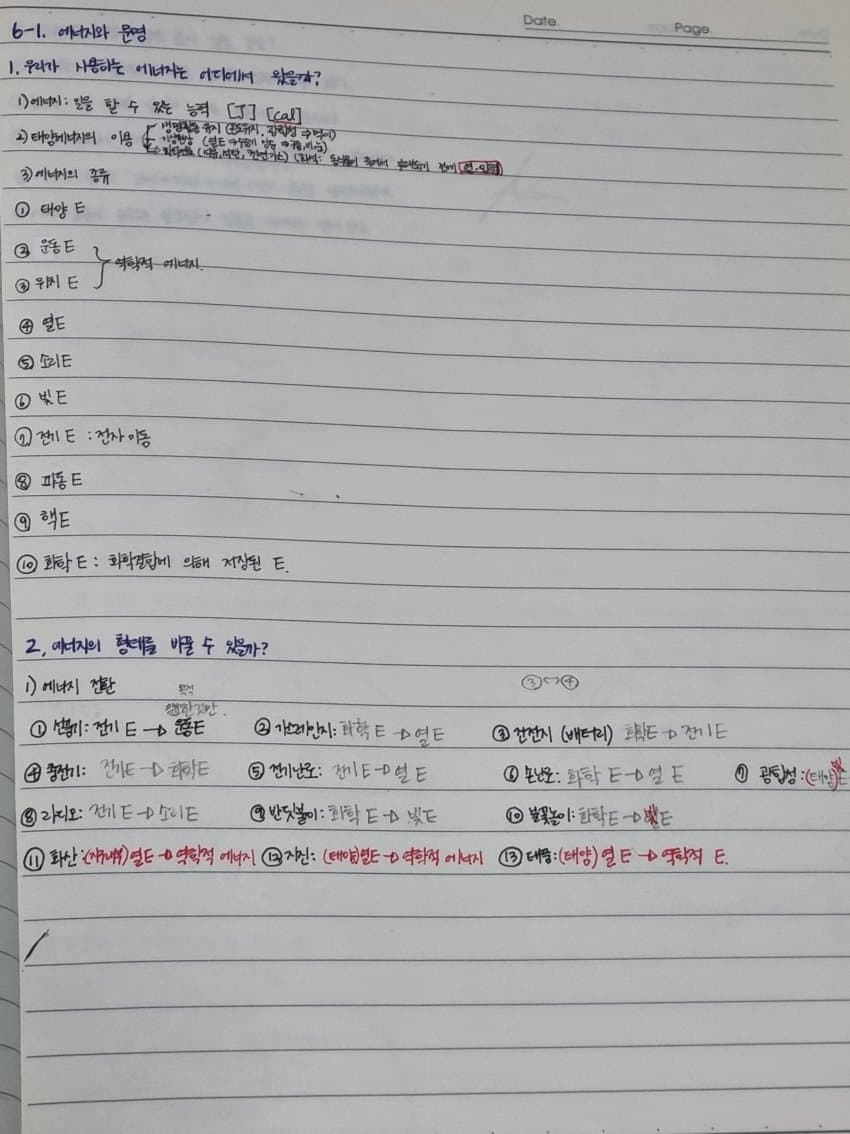 Date.
Page.
6-1. 에너지와 문명
1. 우리가 사용하는 에너지는 어디에서 왔을까?
1) 에너지: 일을 할 수 있는 능력 [J] [cal]
2) 태양에너지의 이용
생명활동 유지 (온도유지, 광합성 → 먹이)
기상현상 (열E → 구름, 비, 눈)
화석연료 (석유, 석탄, 천연가스) (화석: 동식물이 죽어서 전에 열·압력)
3) 에너지의 종류
① 태양 E
② 운동 E
③ 위치 E
역학적 에너지.
④ 열E
⑤ 소리E
⑥ 빛E
⑦ 전기 E : 전자 이동
⑧ 파동 E
⑨ 핵E
⑩ 화학 E : 화학결합에 의해 저장된 E.
2. 에너지의 형태를 바꿀 수 있을까?
1) 에너지 전환
③↔④
① 선풍기: 전기 E → 운동E
② 가스레인지: 화학 E → 열E
③ 건전지 (배터리) 화학E → 전기E
④ 충전기: 전기E → 화학E
⑤ 전기난로: 전기E → 열 E
⑥ 손난로: 화학 E → 열 E
⑦ 광합성: (태양)빛E
⑧ 라디오: 전기 E → 소리E
⑨ 반딧불이: 화학 E → 빛E
⑩ 불꽃놀이: 화학E → 빛E
⑪ 화산: (지구내부)열E → 역학적 에너지
⑫ 지진: (태양)열E → 역학적 에너지
⑬ 태풍: (태양) 열 E → 역학적 E.